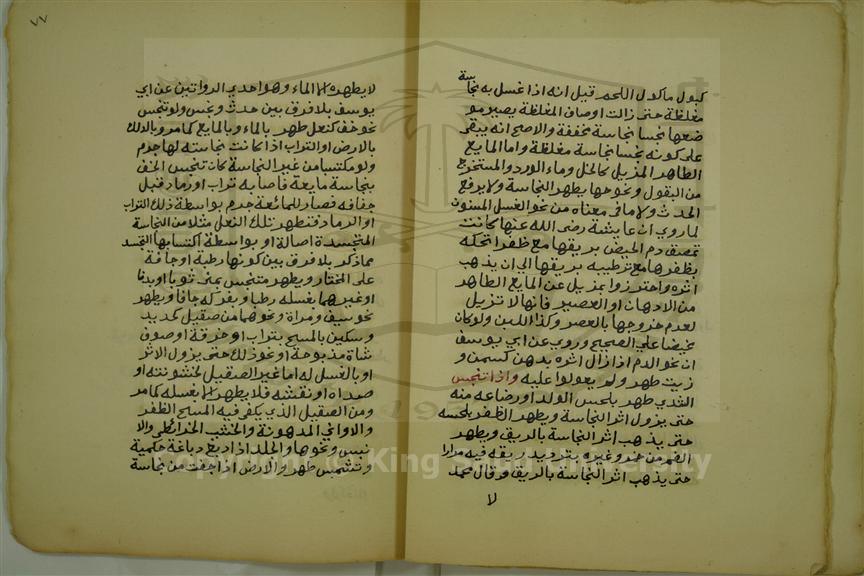 كبول ماكول اللحم قيل انه اذا غسل به نجاسة
مغلظة حتى زالت اوصاف المغلظة يصير مو
ضعها نجسا نجاسة مخففة والاصح انه يبقى
على كونه نجسا نجاسة مغلظة واما المايع
الطاهر المزيل كالخل وماء الورد والمستخرج
من البقول ونحوها يطهر النجاسة ولا يرفع
الحدث ولا ما فى معناه من نحو الغسل المسنون
لما روي ان عايشة رضى الله عنها كانت
تمصق دم الحيض بريقها مع ظفرا تحكه
بظفرها مع ترطيبه بريقها الى ان يذهب
اثره واحترزوا بمزيل عن المايع الطاهر
من الادهان او العصير فانها لا تزيل
لعدم خروجها بالعصر وكذا اللبن ولو كان
مخيضا على الصحيح وروي عن ابي يوسف
ان نحو الدم اذا زال اثره بدهن كسمن و
زيت طهر ولم يعولوا عليه واذا تنجس
الثدي طهر بلحس الولد او رضاعه منه
حتى يزول اثر النجاسة ويطهر الظفر بلحسه
حتى يذهب اثر النجاسة بالريق ويطهر
الفم من خمر وغيره بترديد ريقه فيه مرارا
حتى يذهب اثر النجاسة بالريق وقال محمد
لا
٧٧
لا يطهره الا الماء وهو احدى الرواتين عن ابي
يوسف بلا فرق بين حدث ونجس ولو تنجس
نحو خف كنعل طهر بالماء وبالمايع كما مر وبالدلك
بالارض او التراب اذا كانت نجاسته لها جرم
ولو مكتسبا من غير النجاسة كان تنجس الخف
بنجاسة مايعة فاصابه تراب او رماد قبل
جفافه فصار للمائعة جرم بواسطة ذلك التراب
او الرماد فتطهر تلك النعل مثلا من النجاسة
المتجسدة اصالة او بواسطة اكتسابها التجسد
مما ذكر بلا فرق بين كونها رطبة او جافة
على المختار ويطهر متنجس بمني ثوبا او بدنا
او غيرهما بغسله رطبا وبفركه جافا ويطهر
نحو سيف ومراة ونحوهما من صقيل كحديد
وسكين بالمسح بتراب او خرقة او صوف
شاة مذبوحة او نحو ذلك حتى يزول الاثر
او بالغسل له اما غير الصقيل لخشونته او
صداه او نقشه فلا يطهر الا بغسله كما مر
ومن الصقيل الذي يكفر فيه المسح الظفر
والاواني المدهونة والخشب الخرائطى والا
نبس ونحوها والجلد اذا دبغ دباغة حكمية
وتشميس طهر والارض اذا جفت من نجاسة
Copyright © King University